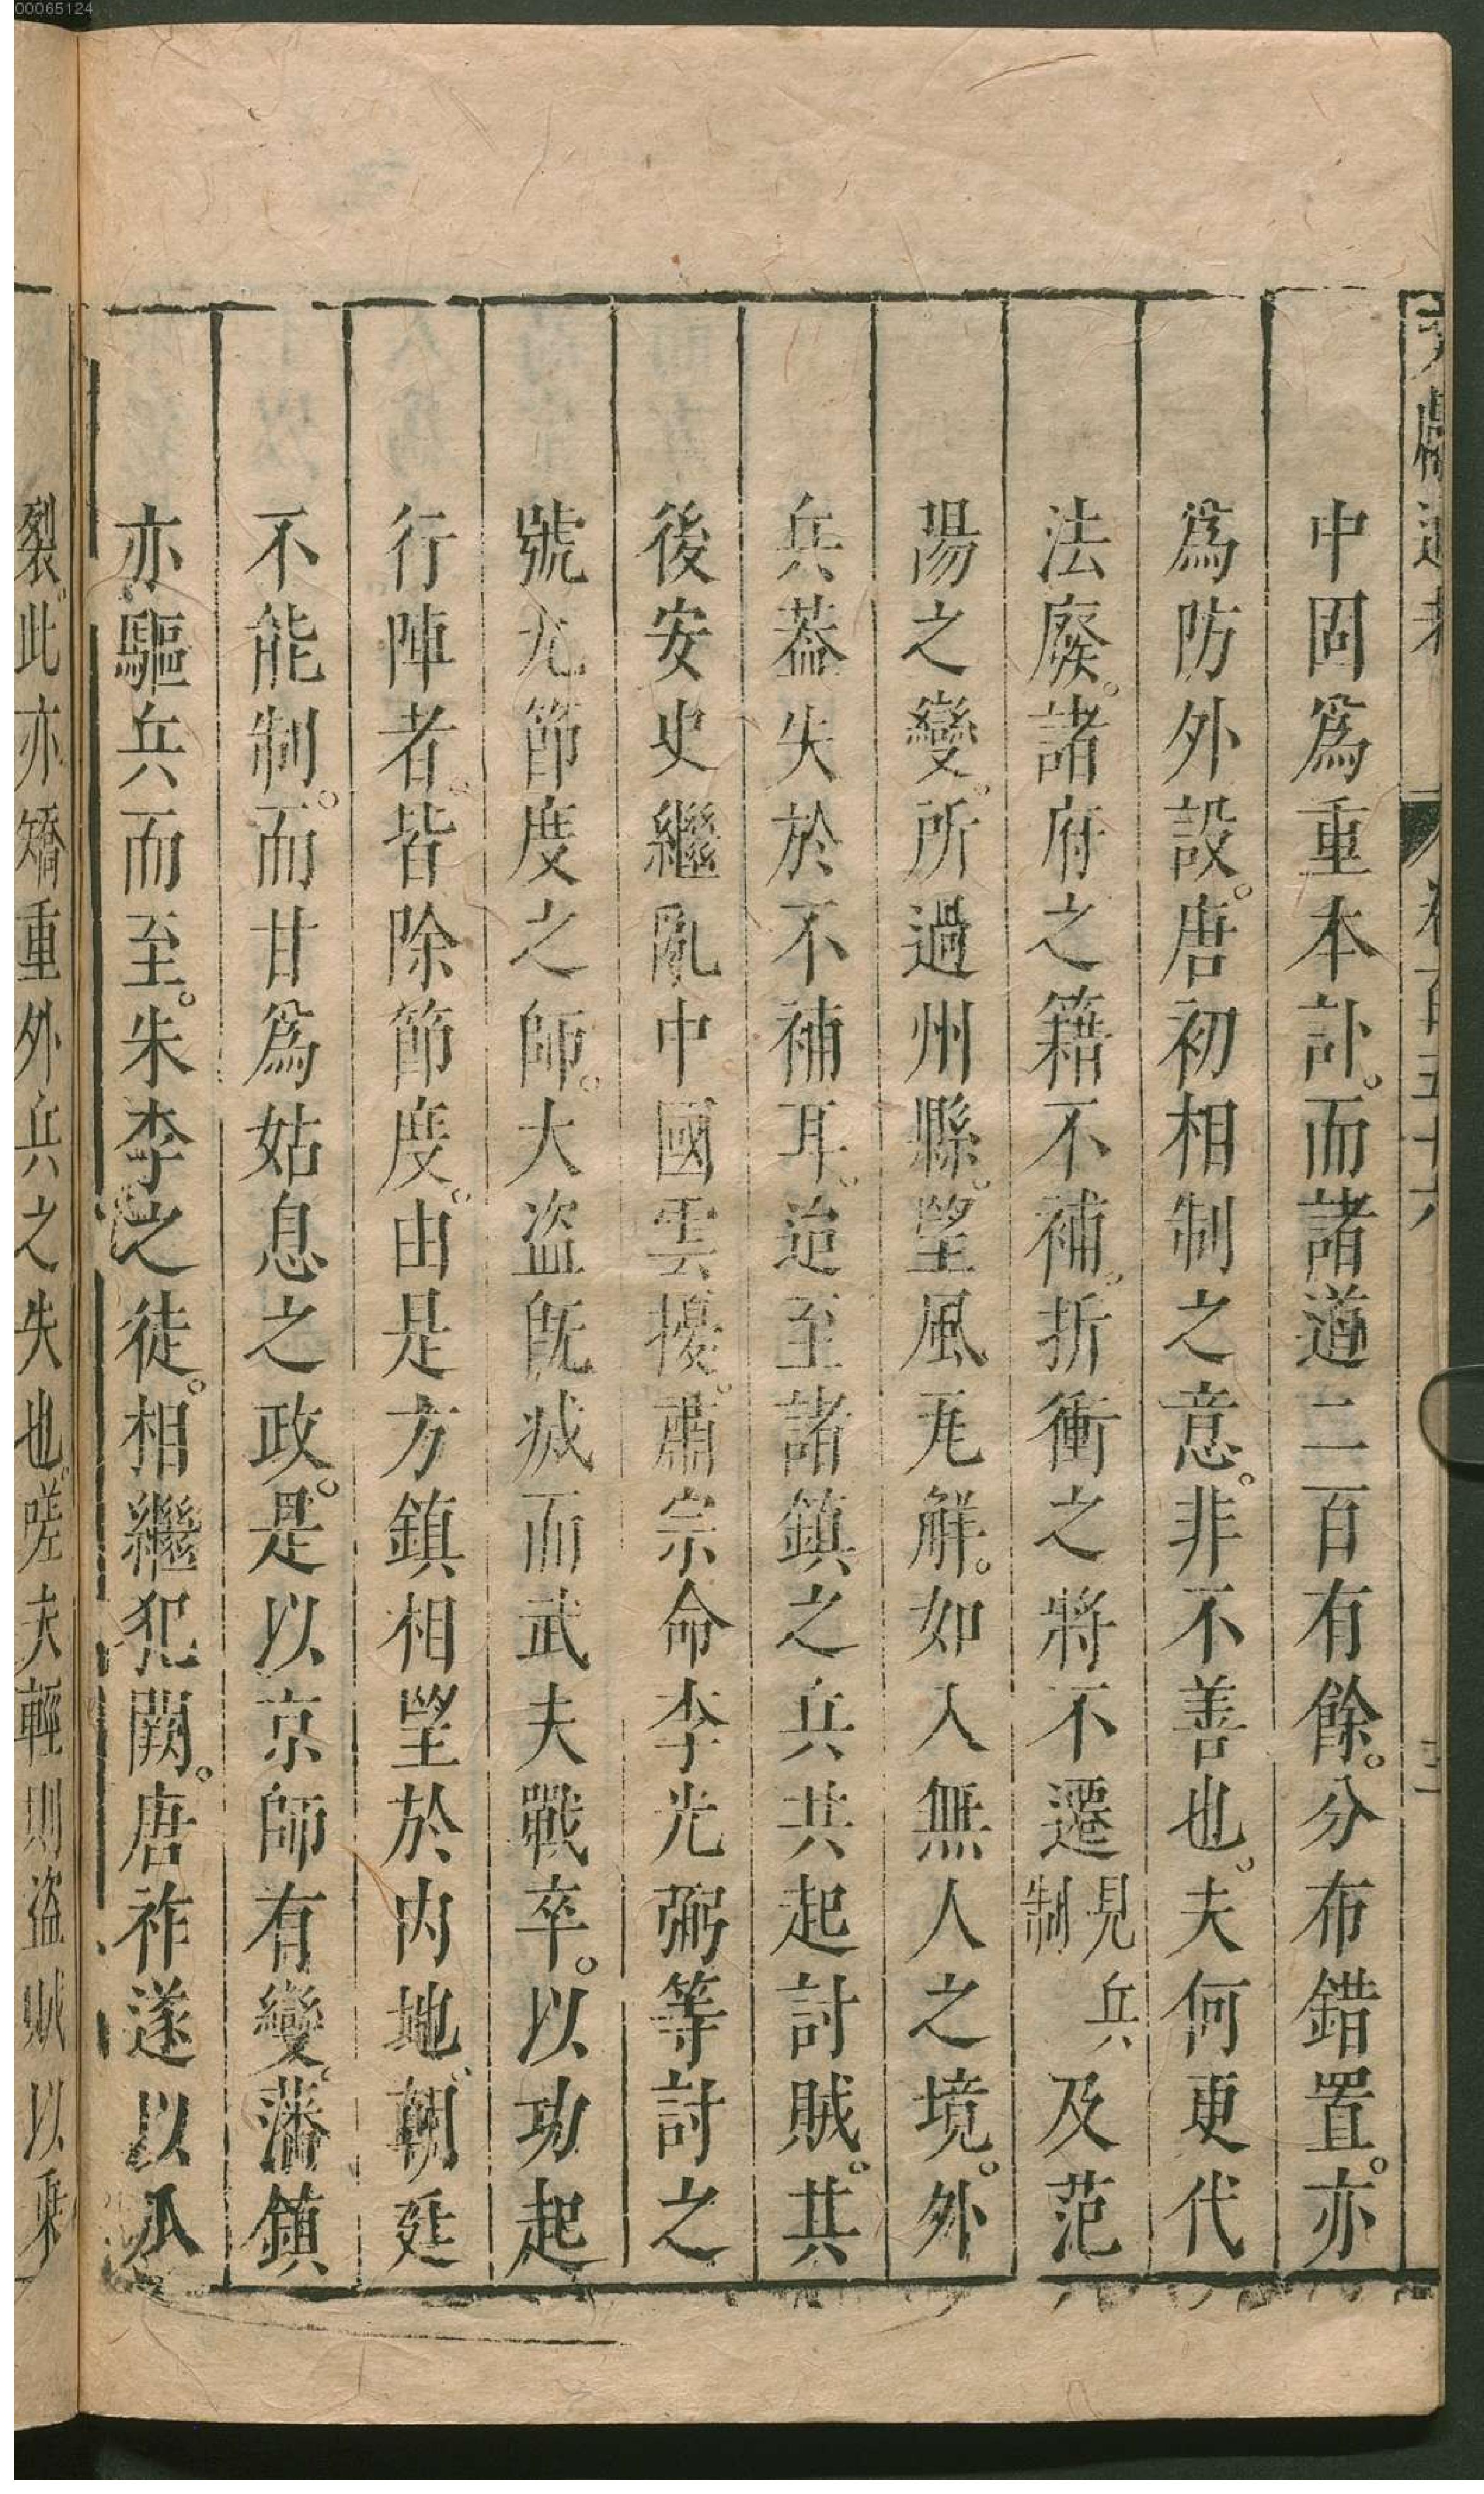 00065124
中固爲重本訃。而諸道二百有餘。分布錯置。亦
爲防外設。唐初相制之意。非不善也。夫何更代
法廢。諸府之籍不補。折衝之將不遷見兵制及范
陽之變。所過州縣。望風瓦解。如入無人之境。外
兵葢失於不補耳。迨至諸鎮之兵共起討賊。其
後安史繼亂中國雲擾。肅宗命李光弼等討之
號九節度之師。大盗旣滅而武夫戰卒。以功起
行陣者。皆除節度。由是方鎮相望於内地。朝廷
不能制。而甘爲姑息之政。是以京師有變。藩鎮
亦驅兵而至。朱李之徒。相繼犯闕。唐祚遂以瓜
裂。此亦矯重外兵之失也。嗟夫輕則盗賊以乘